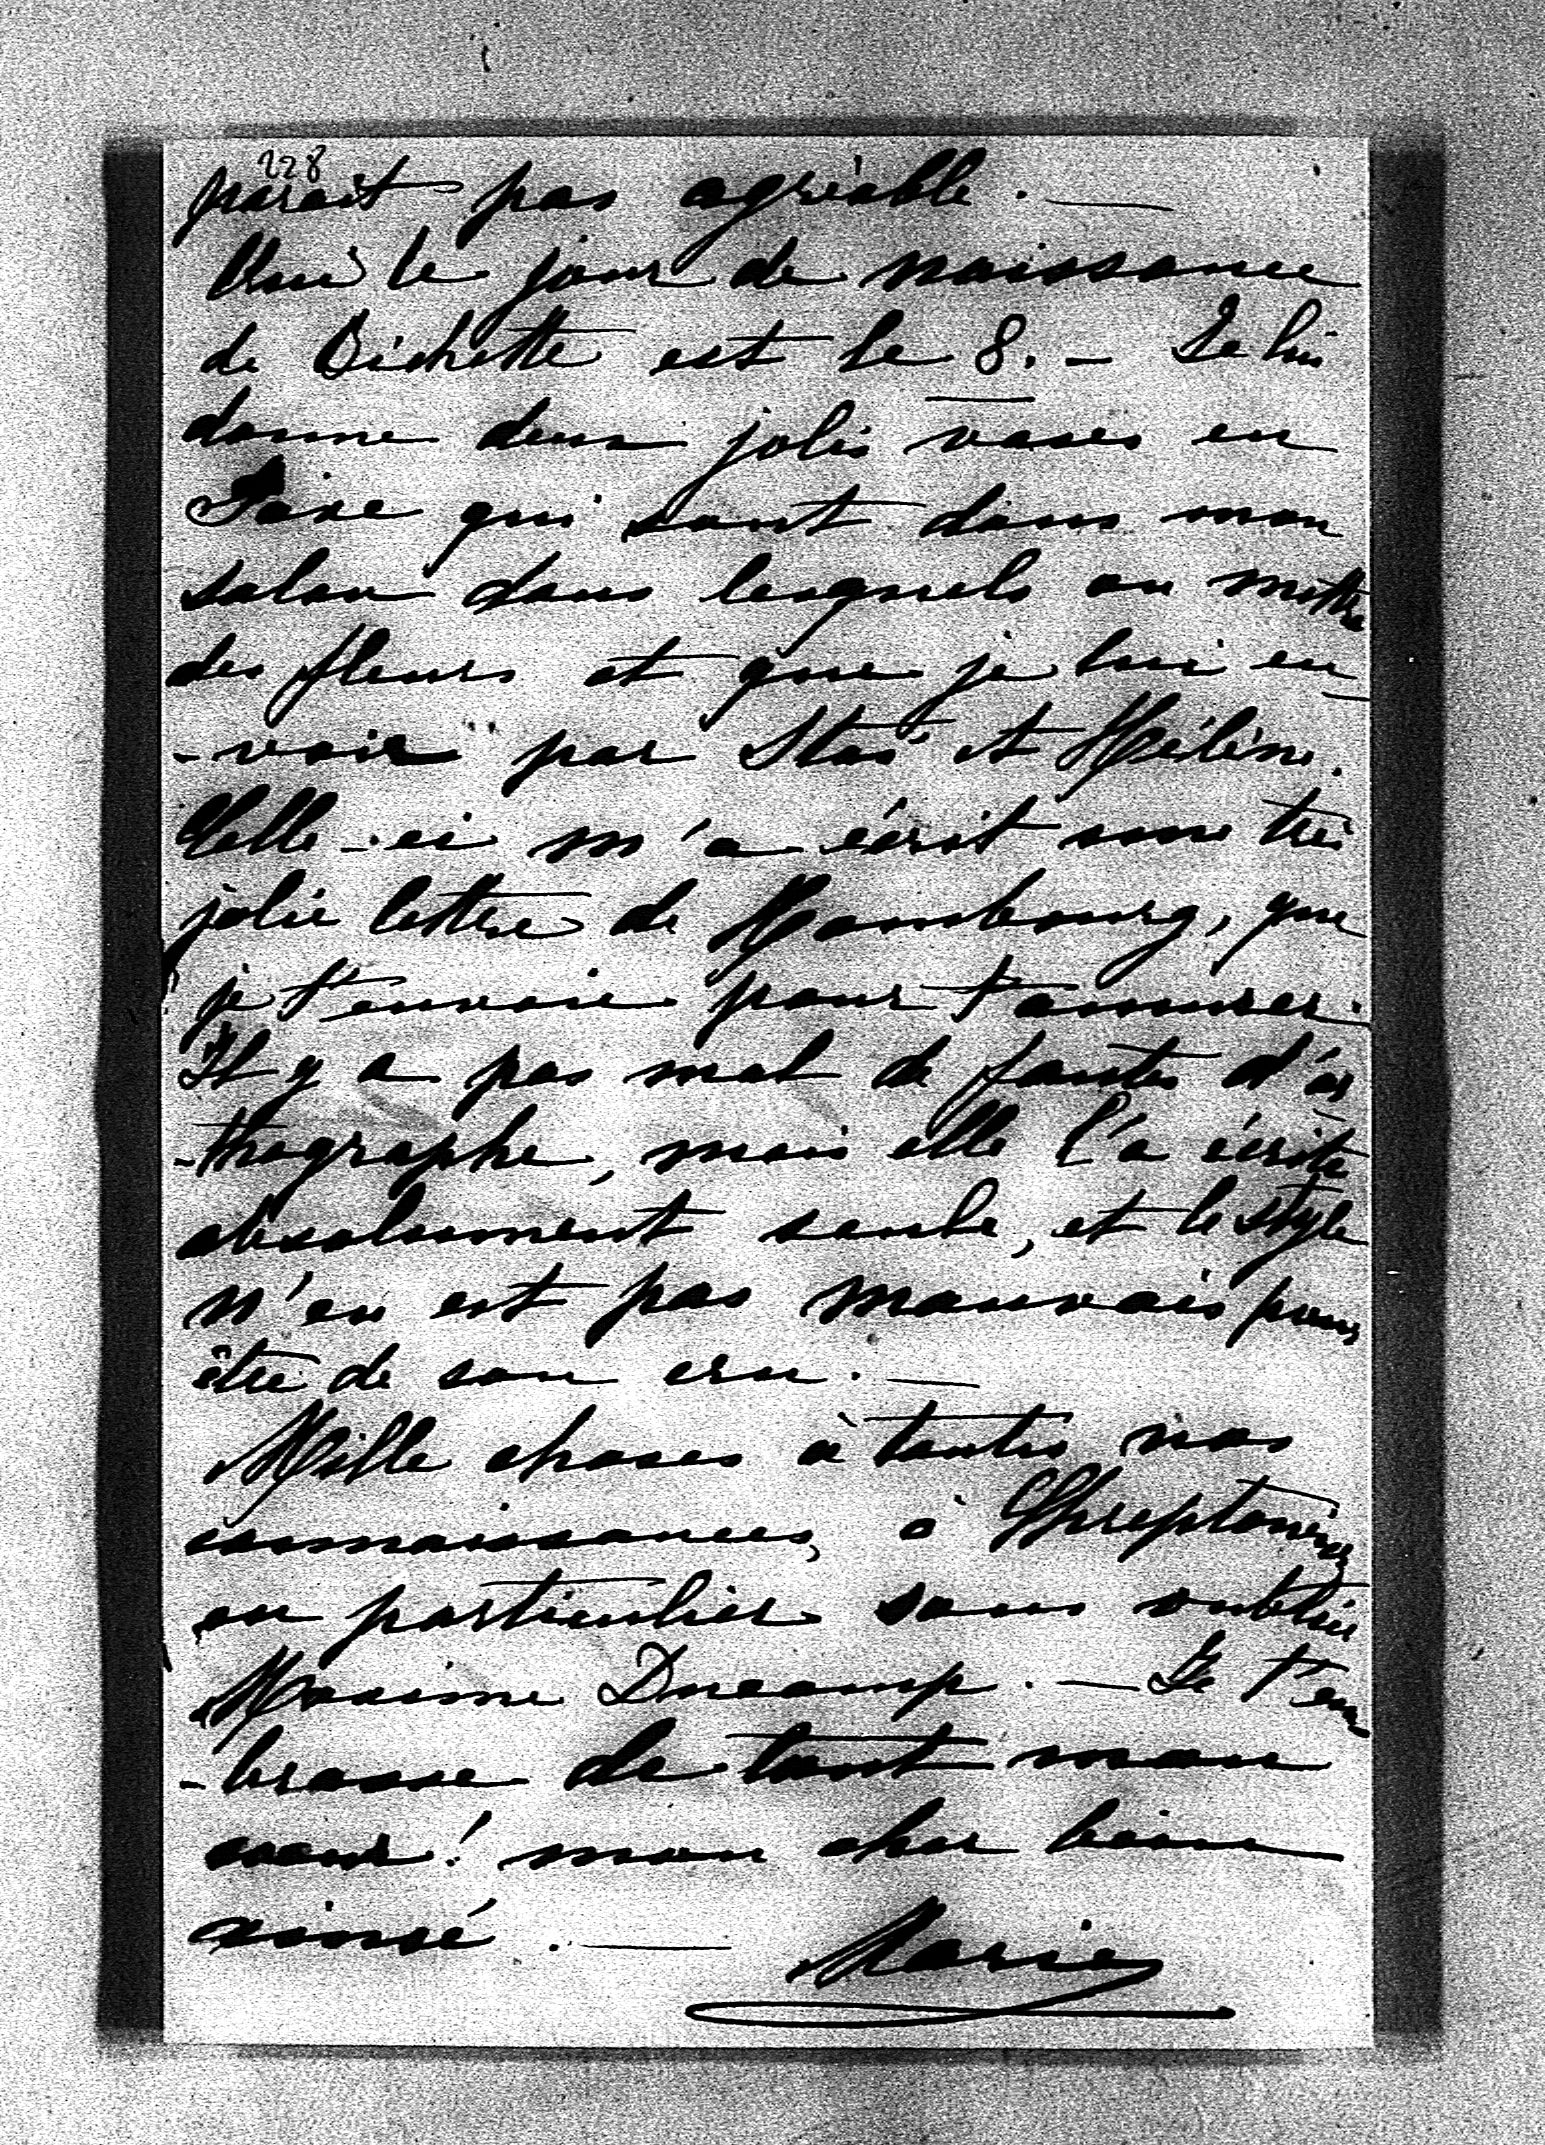 228
parait pas agréable. —
Oui le jour de naissance
de Bichette est le 8. — Je lui
donne deux jolis vases en
Saxe qui sont dans mon
salon dans lesquels on mettra
des fleurs et que je lui en-
-voie par Stas et Hélène.
Celle-ci m'a écrit une très
jolie lettre de Hambourg, que
je t'envoie pour t'amuser.
Il y a pas mal de fautes d'or-
-thographe, mais elle l'a écrite
absolument seule, et le style
n'en est pas mauvais pour
être de son cru. —
Mille choses à toutes nos
connaissances, à
en particulier sans oublier
Maxime Ducamp. — Je t'em
-brasse de tout mon
coeur! mon cher bien
aimé. — Marie